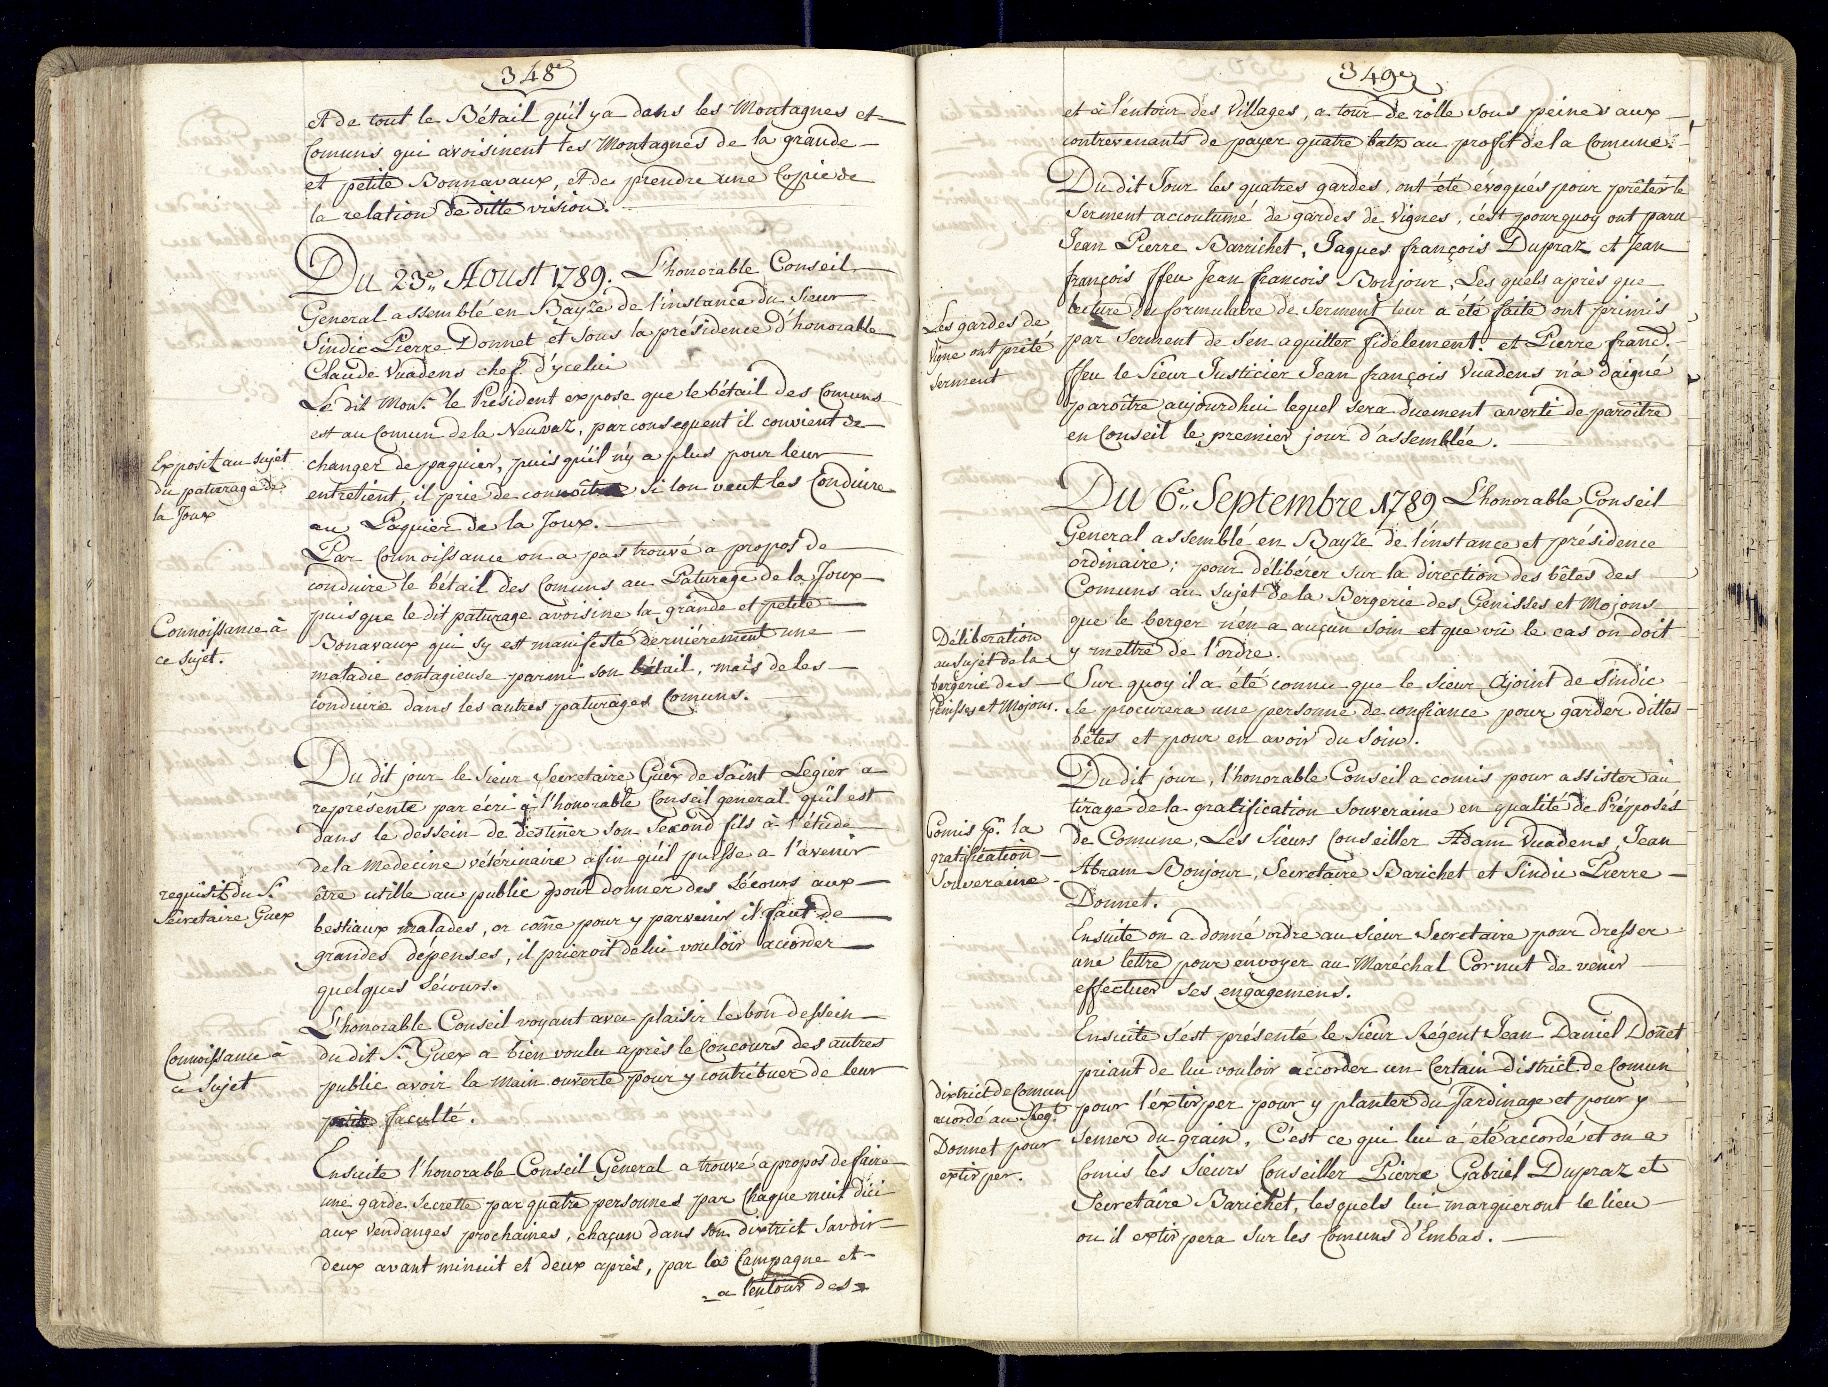 348e
et de tout le Bétail qu'il y a dans les Montagnes et
Comuns qui avoisinent les Montagnes de la grande
et petite Bonnavaux, et de prendre une Copie de
la relation de ditte vision.
Du 23e. Aoust 1789. L'honorable Conseil
General assemblé en Bayze de l'instance du Sieur
Sindic Pierre Donnet et sous la présidence d'honorable
Claude Vuadens chef d'ycelui
Le dit Monr. le Président expose que le bétail des Comuns
est au Comun de la Neuvaz, par consequent il convient de
Exposit au sujet
du paturage de
la Joux
changer de paquier, puis qu'il n'y a plus pour leur
entretient, il prie de connoître si lon veut les Conduire
au Paquier de la Joux.
Par Connoissance on a pas trouvé a propos de
conduire le bétail des Comuns au Paturage de la Joux
Connoissance à
ce sujet.
puis que le dit paturage avoisine la grande et petite
Bonavaux qui sy est manifesté derniérement une
maladie contagieuse parmi son bétail, mais de les
conduire dans les autres paturages Comuns.
Du dit jour le Sieur Secretaire Guex de Saint Legier a
représenté par écri à l'honorable Conseil general qu'il est
dans le dessein de destiner son Second fils à l'étude
de la Medecine vétérinaire afin qu'il puisse a l'avenir
requisit du Sr.
Sécretaire Guex
être utille au public pour donner des Sécours aux
bestiaux malades, or come pour y parvenir il faut de
grandes dépenses, il prieroit de lui vouloir accorder
quelques Sécours.
L'honorable Conseil voyant avec plaisir le bon dessein
Connoissance à
ce Sujet
du dit Sr. Guex a bien voulu après le Concours des autres
public avoir la main ouverte pour y contribuer de leur
faculté.
Ensuite l'honorable Conseil General a trouvé a propos de faire
une garde Secrette par quatre personnes par Chaque nuit dici
aux Vendanges prochaines, chaçun dans son district Savoir
deux avant minuit et deux après, par la Campagne et
a l'entour des
349e
et à l'entour des Villages, a tour de rolle sous peines aux
contrevenants de payer quatre batz au profit de la Comune.
Du dit Jour les quatres gardes, ont été évoqués pour prêter le
Serment accoutumé de gardes de Vignes, c'est pourquoy ont paru
Jean Pierre Barrichet, Jaques françois Dupraz et Jean
françois ffeu Jean francois Bonjour, Les quels après que
Les gardes de
Vigne ont prêté
serment
lecture du formulaire de Serment leur a été faite ont primis
par Serment de s'en aquitter fidelement. et Pierre franc.
ffeu le Sieur Justicier Jean françois Vuadens n'a daigné
paroître aujourdhui lequel sera duement averti de paroitre
en Conseil le premier jour d'assemblée.
Du 6e. Septembre 1789 L'honorable Conseil
General assemblé en Bayze de l'instance et présidence
ordinaire; pour déliberer sur la direction des bêtes des
Comuns au sujet de la Bergerie des Génisses et Mojons
que le berger n'en a auçun soin et que vû le cas on doit
Déliberation
au Sujet de la
bergerie des
génisses et Mojons.
y mettre de l'ordre.
Sur quoy il a été connu que le Sieur Ajoint de Sindic
se procurera une personne de confiance pour garder dittes
bêtes et pour en avoir du Soin.
Du dit jour, l'honorable Conseil a comis pour assister au
tirage de la gratification Souveraine en qualité de Préposés
Comis pr. la
gratification
Souveraine
de Comune, Les Sieurs Conseiller Adam Vuadens, Jean
Abram Bonjour, Secretaire Barichet et Sindic Pierre
Donnet.
Ensuite on a donné ordre au Sieur Secretaire pour dresser
une lettre pour envoyer au Maréchal Cornut de venir
effectuer ses engagemens.
Ensuite s'est présenté le Sieur Régent Jean Daniel Donet
priant de lui vouloir accorder un Certain district de Comun
district de Comun
acordé au Regt.
Donnet pour
extirper.
pour l'éxtirper pour y planter du Jardinage et pour y
semer du grain. C'est ce qui lui a été accordé et on a
Comis les Sieurs Conseiller Pierre Gabriel Dupraz et
Secretaire Barichet, lesquels lui marqueront le lieu
ou il extirpera sur les Comuns d'Embas.